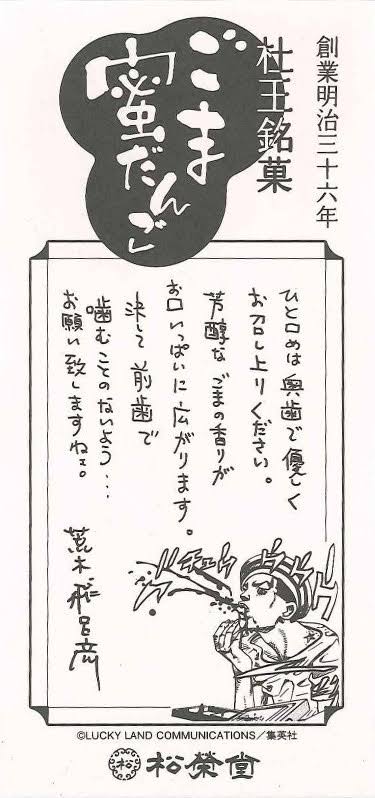 創業明治三十六年
杜王銘菓
ごま
蜜だんご
ひと口めは奥歯で優しく
お召し上りください。
芳醇なごまの香りが
お口いっぱいに広がります。
決して前歯で
噛むことのないよう…
お願い致しますねェ。
荒木飛呂彦
ブチュウ
©LUCKY LAND COMMUNICATIONS／集英社
松 松榮堂